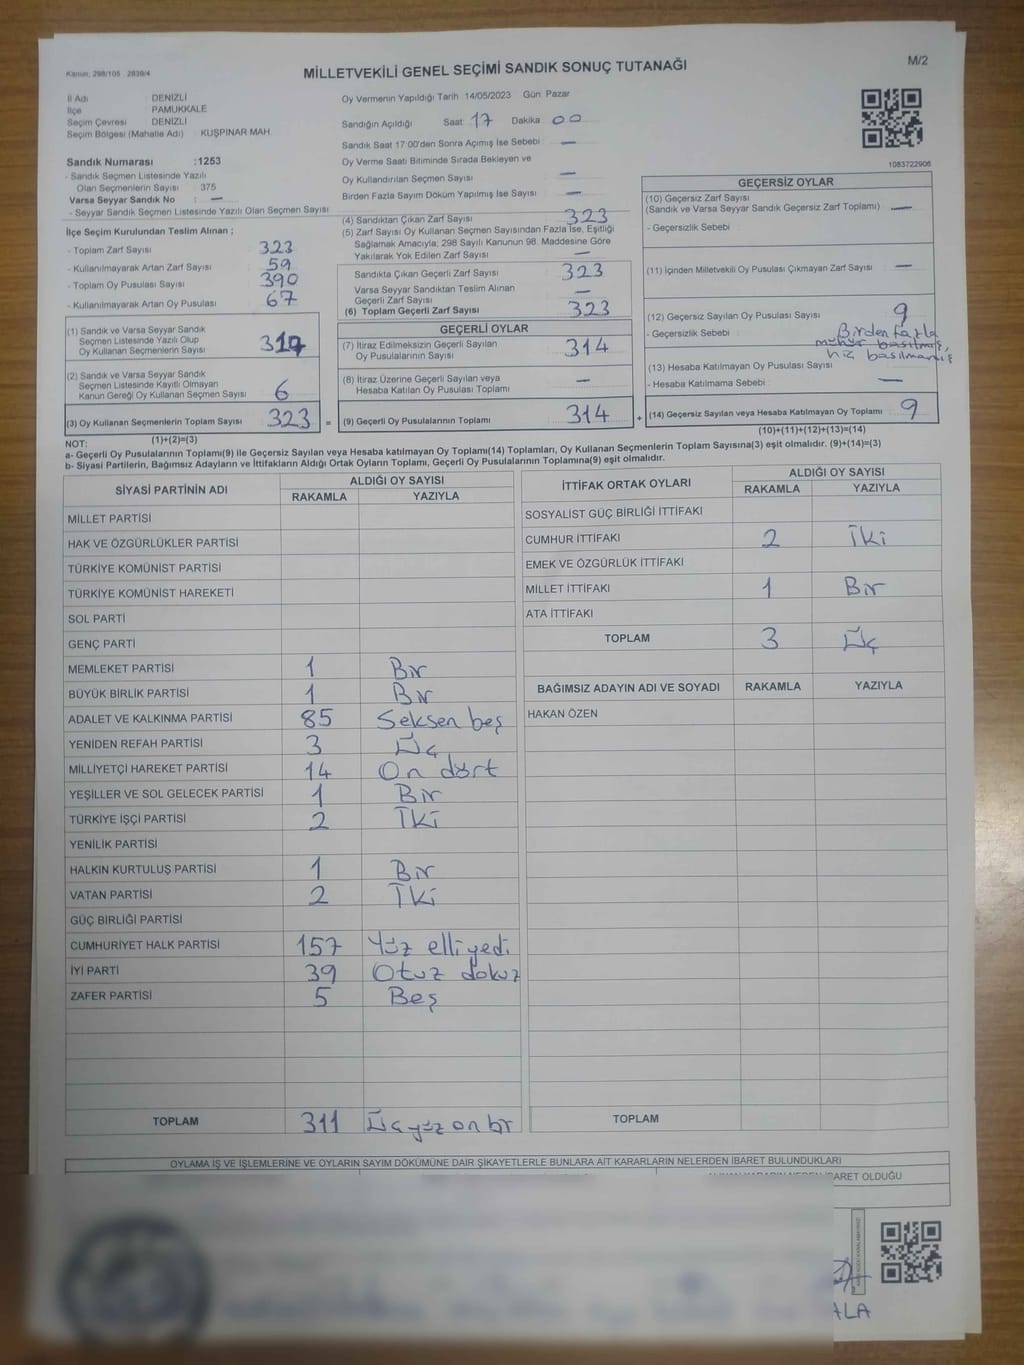 Kanun: 298/105 , 2839/4
MİLLETVEKİLİ GENEL SEÇİMİ SANDIK SONUÇ TUTANAĞI
M/2
İl Adı : DENİZLİ
İlçe : PAMUKKALE
Seçim Çevresi : DENİZLİ
Seçim Bölgesi (Mahalle Adı) : KUŞPINAR MAH.
Sandık Numarası :1253
- Sandık Seçmen Listesinde Yazılı
Olan Seçmenlerin Sayısı : 375
Varsa Seyyar Sandık No : —
- Seyyar Sandık Seçmen Listesinde Yazılı Olan Seçmen Sayısı
Oy Vermenin Yapıldığı Tarih : 14/05/2023 Gün: Pazar
Sandığın Açıldığı Saat 17 Dakika 00
Sandık Saat 17:00'den Sonra Açımış İse Sebebi : —
Oy Verme Saati Bitiminde Sırada Bekleyen ve
Oy Kullandırılan Seçmen Sayısı : —
Birden Fazla Sayım Döküm Yapılmış İse Sayısı : —
1083722906
İlçe Seçim Kurulundan Teslim Alınan ;
- Toplam Zarf Sayısı : 323
- Kullanılmayarak Artan Zarf Sayısı : 59
- Toplam Oy Pusulası Sayısı : 390
- Kullanılmayarak Artan Oy Pusulası : 67
(1) Sandık ve Varsa Seyyar Sandık
Seçmen Listesinde Yazılı Olup
Oy Kullanan Seçmenlerin Sayısı : 317
(2) Sandık ve Varsa Seyyar Sandık
Seçmen Listesinde Kayıtlı Olmayan
Kanun Gereği Oy Kullanan Seçmen Sayısı : 6
(3) Oy Kullanan Seçmenlerin Toplam Sayısı : 323 =
(4) Sandıktan Çıkan Zarf Sayısı : 323
(5) Zarf Sayısı Oy Kullanan Seçmen Sayısından Fazla İse, Eşitliği
Sağlamak Amacıyla, 298 Sayılı Kanunun 98. Maddesine Göre
Yakılarak Yok Edilen Zarf Sayısı : —
Sandıkta Çıkan Geçerli Zarf Sayısı : 323
Varsa Seyyar Sandıktan Teslim Alınan
Geçerli Zarf Sayısı : —
(6) Toplam Geçerli Zarf Sayısı : 323
GEÇERLİ OYLAR
(7) İtiraz Edilmeksizin Geçerli Sayılan
Oy Pusulalarının Sayısı : 314
(8) İtiraz Üzerine Geçerli Sayılan veya
Hesaba Katılan Oy Pusulası Toplamı : —
(9) Geçerli Oy Pusulalarının Toplamı : 314 +
GEÇERSİZ OYLAR
(10) Geçersiz Zarf Sayısı
(Sandık ve Varsa Seyyar Sandık Geçersiz Zarf Toplamı) : —
- Geçersizlik Sebebi :
(11) İçinden Milletvekili Oy Pusulası Çıkmayan Zarf Sayısı : —
(12) Geçersiz Sayılan Oy Pusulası Sayısı : 9
- Geçersizlik Sebebi : Birden fazla
mühür basılmış,
hiç basılmamış
(13) Hesaba Katılmayan Oy Pusulası Sayısı : —
- Hesaba Katılmama Sebebi :
(14) Geçersiz Sayılan veya Hesaba Katılmayan Oy Toplamı : 9
(10)+(11)+(12)+(13)=(14)
NOT: (1)+(2)=(3)
a- Geçerli Oy Pusulalarının Toplamı(9) ile Geçersiz Sayılan veya Hesaba katılmayan Oy Toplamı(14) Toplamları, Oy Kullanan Seçmenlerin Toplam Sayısına(3) eşit olmalıdır. (9)+(14)=(3)
b- Siyasi Partilerin, Bağımsız Adayların ve İttifakların Aldığı Ortak Oyların Toplamı, Geçerli Oy Pusulalarının Toplamına(9) eşit olmalıdır.
SİYASİ PARTİNİN ADI ALDIĞI OY SAYISI
RAKAMLA YAZIYLA
MİLLET PARTİSİ
HAK VE ÖZGÜRLÜKLER PARTİSİ
TÜRKİYE KOMÜNİST PARTİSİ
TÜRKİYE KOMÜNİST HAREKETİ
SOL PARTİ
GENÇ PARTİ
MEMLEKET PARTİSİ 1 Bir
BÜYÜK BİRLİK PARTİSİ 1 Bir
ADALET VE KALKINMA PARTİSİ 85 Seksen beş
YENİDEN REFAH PARTİSİ 3 Üç
MİLLİYETÇİ HAREKET PARTİSİ 14 On dört
YEŞİLLER VE SOL GELECEK PARTİSİ 1 Bir
TÜRKİYE İŞÇİ PARTİSİ 2 İki
YENİLİK PARTİSİ
HALKIN KURTULUŞ PARTİSİ 1 Bir
VATAN PARTİSİ 2 İki
GÜÇ BİRLİĞİ PARTİSİ
CUMHURİYET HALK PARTİSİ 157 Yüz elli yedi
İYİ PARTİ 39 Otuz dokuz
ZAFER PARTİSİ 5 Beş
TOPLAM 311 Üç yüz on bir
İTTİFAK ORTAK OYLARI ALDIĞI OY SAYISI
RAKAMLA YAZIYLA
SOSYALİST GÜÇ BİRLİĞİ İTTİFAKI
CUMHUR İTTİFAKI 2 İki
EMEK VE ÖZGÜRLÜK İTTİFAKI
MİLLET İTTİFAKI 1 Bir
ATA İTTİFAKI
TOPLAM 3 Üç
BAĞIMSIZ ADAYIN ADI VE SOYADI RAKAMLA YAZIYLA
HAKAN ÖZEN
TOPLAM
OYLAMA İŞ VE İŞLEMLERİNE VE OYLARIN SAYIM DÖKÜMÜNE DAİR ŞİKAYETLERLE BUNLARA AİT KARARLARIN NELERDEN İBARET BULUNDUKLARI
İBARET OLDUĞU
ALA